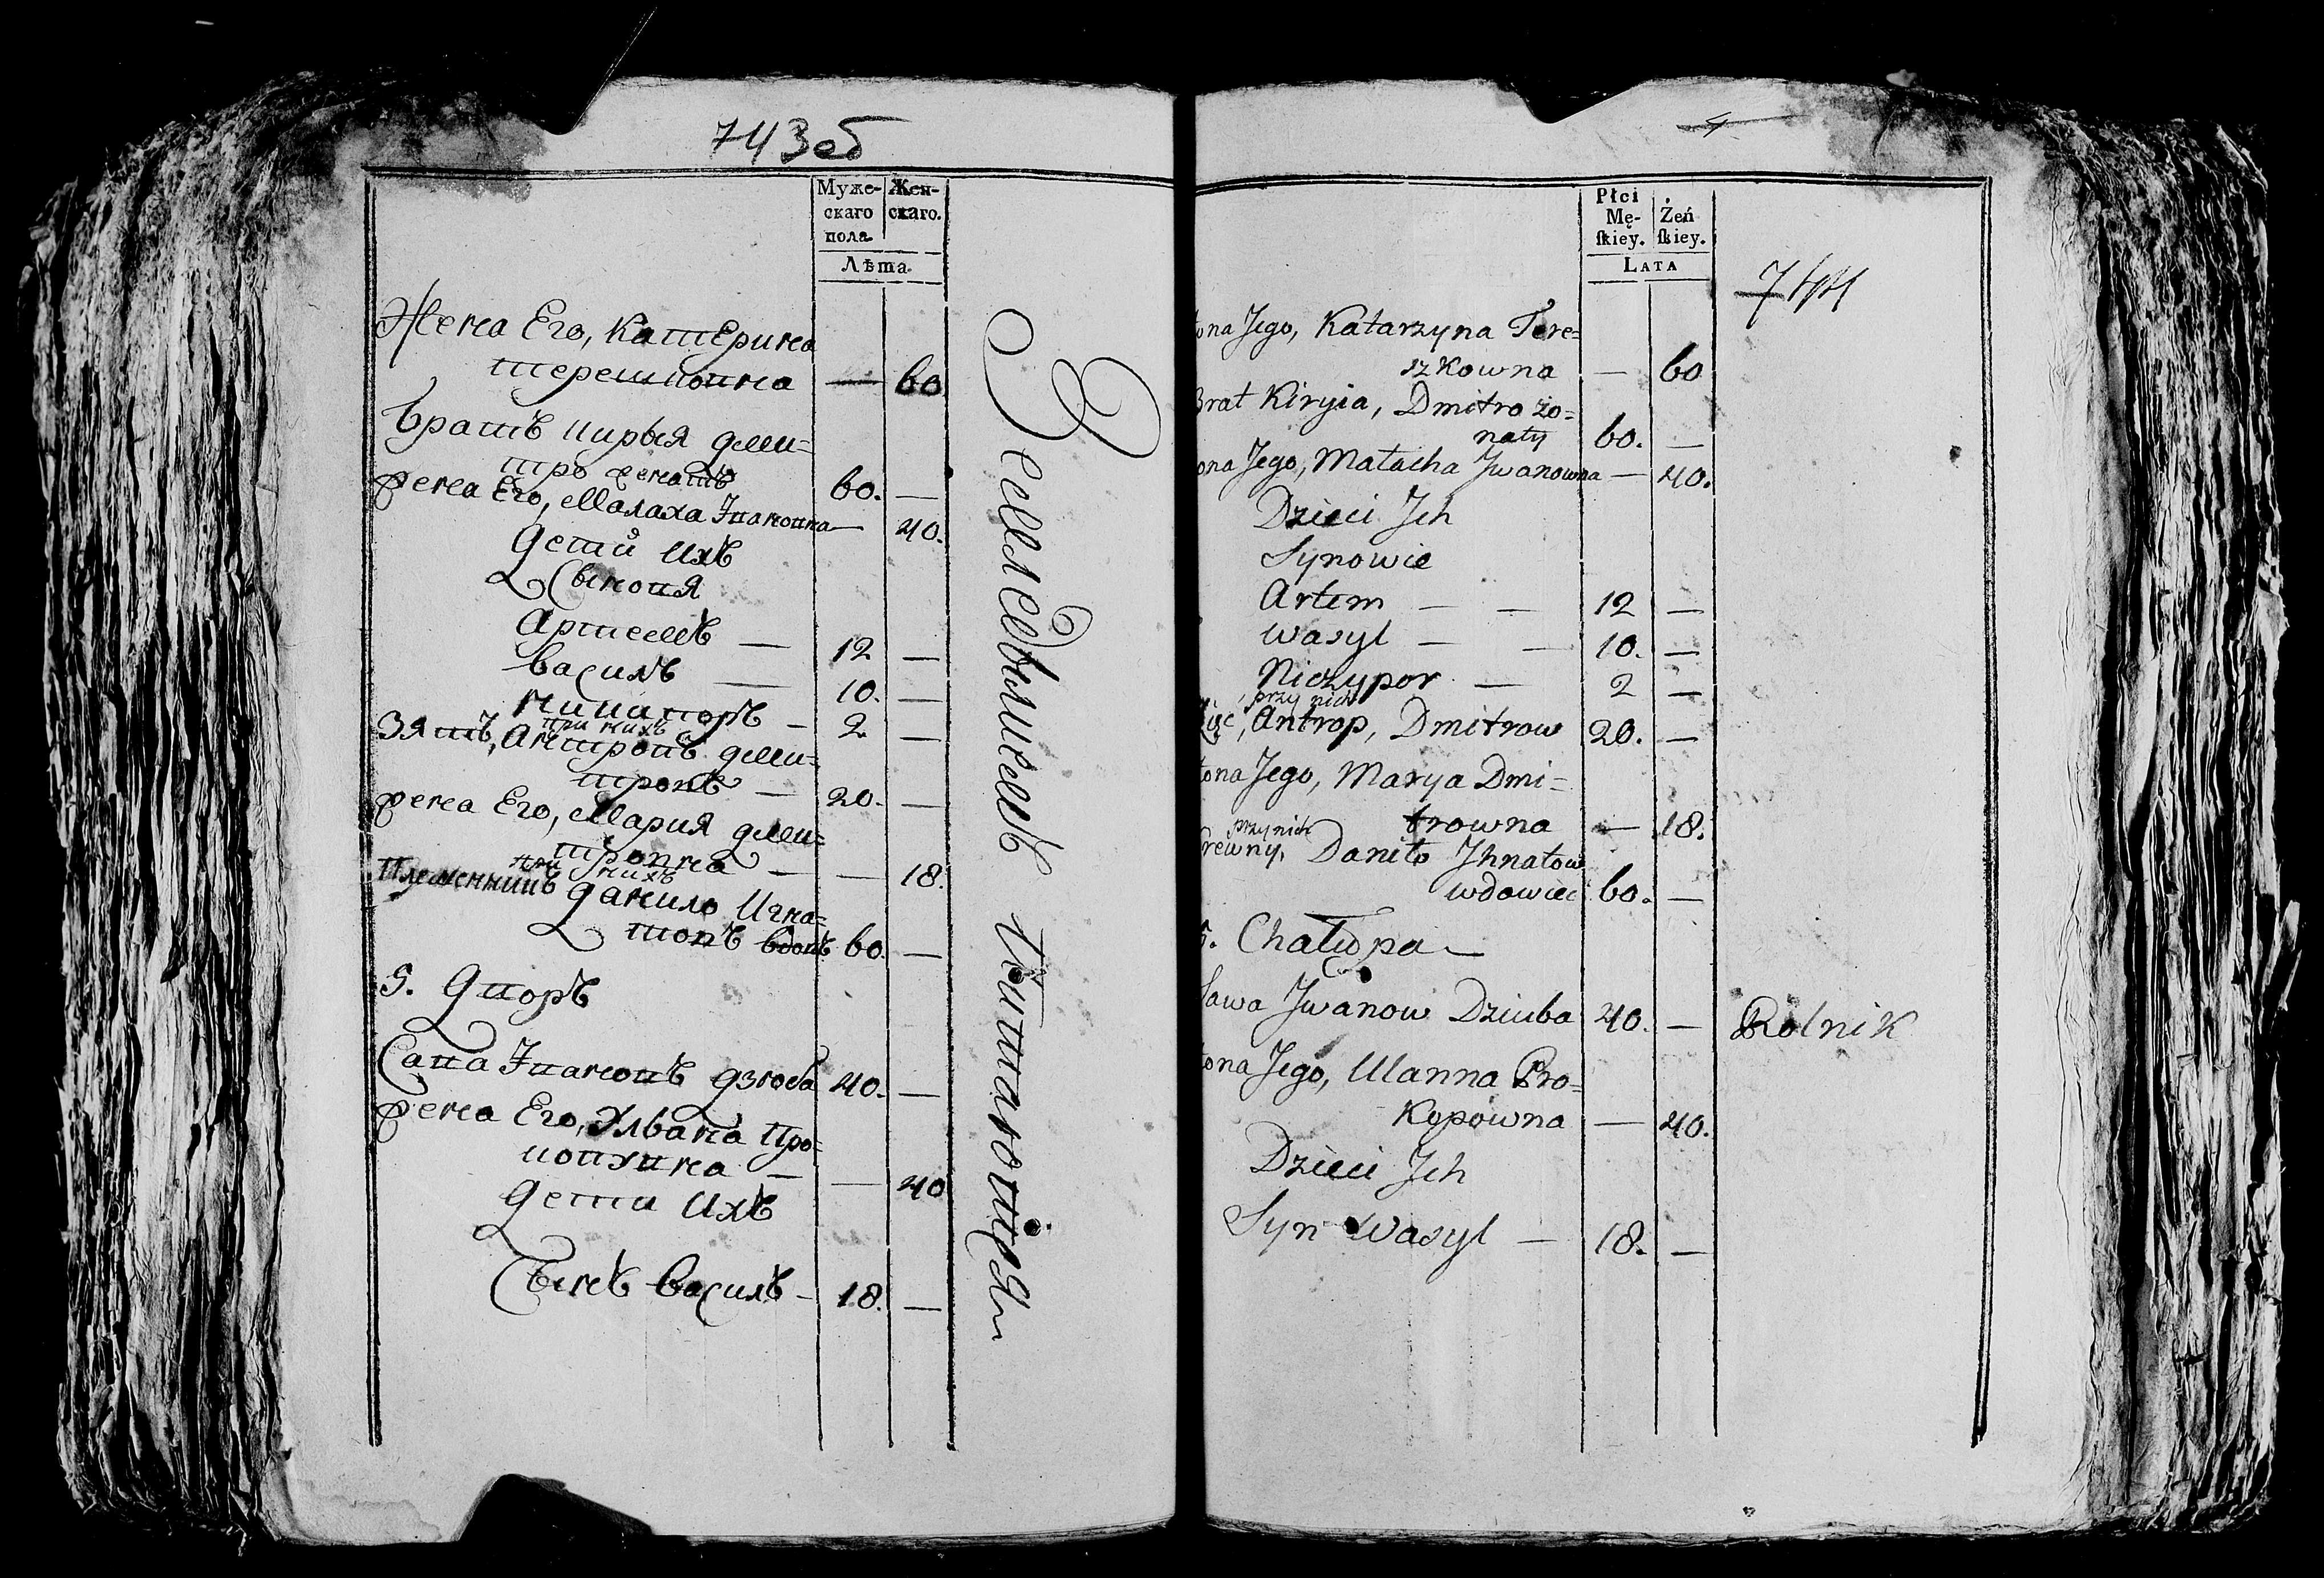 743об
Муже-
скаго
пола.
Жен-
скаго.
Лѣта.
Жена Его, Катерина
терешковна — 60
братъ кирыя дми-
тро женатъ 60. —
жена Его, Малаха Ивановна — 40.
дети ихъ
Сыновя
Артемъ — 12 —
василъ — 10. —
Ничипоръ — 2 —
при нихъ
Зять, Антропъ дми-
тровъ — 20. —
жена Его, Мария дми-
тровна — — 18.
при нихъ
племенникъ данило Игна-
товъ вдовъ 60. —
5. дворъ
Сава Ивановъ дзюба 40. —
жена Его, Улвана Про-
копувна — — 40
дети ихъ
Сынъ василъ — 18. —
Земледѣлиемъ питаются
4
Płci
Mę-
ſkiey.
Żeń
ſkiey.
LATA
744
ona Jego, Katarzyna Tere=
szkowna — 60
Brat Kiryia, Dmitro żo=
naty 60. —
ona Jego, Małacha Jwanowna — 40.
Dzieci Jch
Synowie
Artem — — 12 —
Wasyl — — 10. —
Niczypor — 2 —
przy nich
Zięć, Antrop, Dmitrow 20. —
ona Jego, Marya Dmi=
trowna — 18.
przy nich
rewny, Daniło Jhnatow
wdowiec 60. —
5. Chałupa —
Sawa Jwanow Dziuba 40. — Rolnik
ona Jego, Ulanna Pro=
kopowna — 40.
Dzieci Jch
Syn Wasyl — 18. —